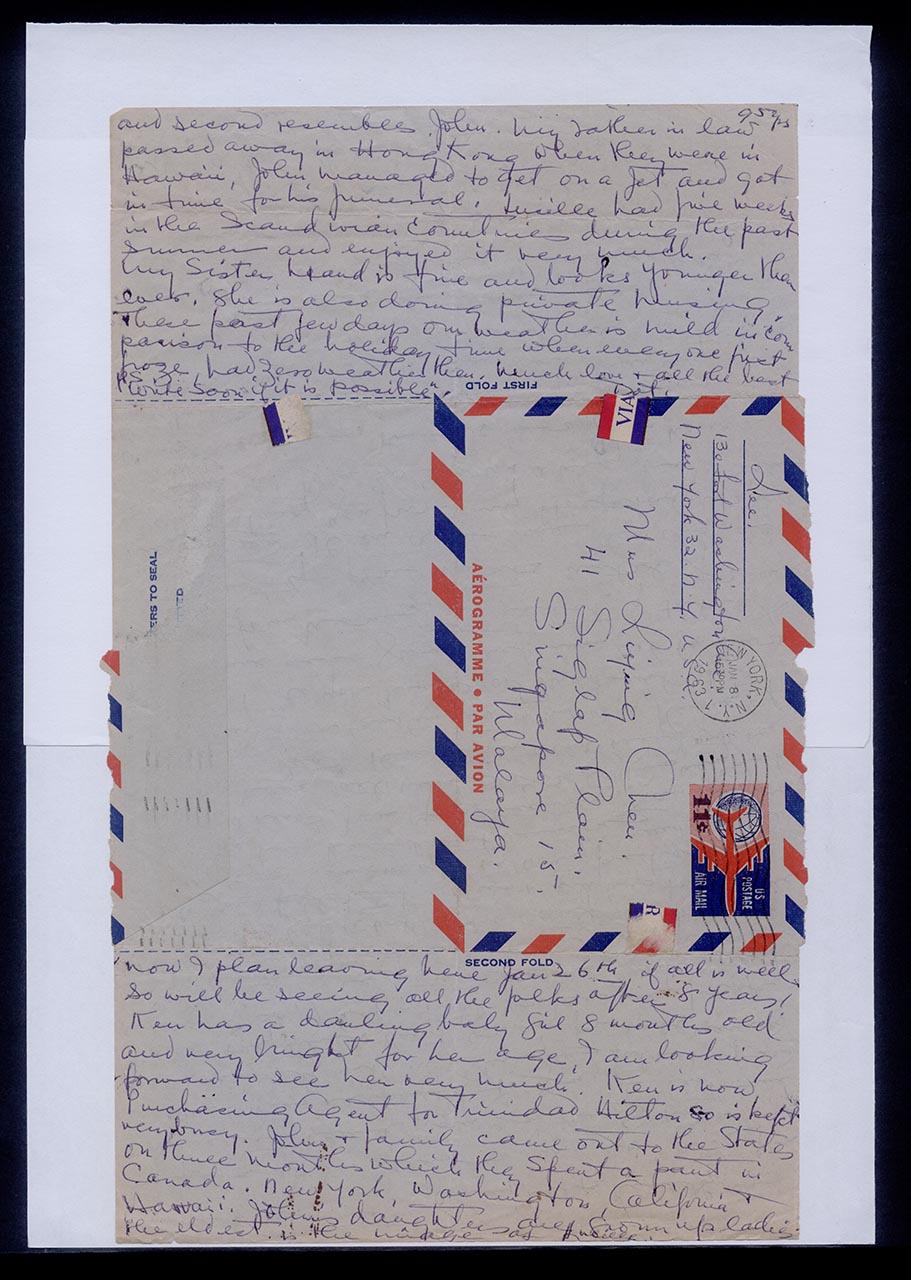 95 yrs
and second resembles John. My father in law
passed away in Hong Kong when they were in
Hawaii, John managed to get on a jet and got
in time for his funeral. Lucille had five weeks
in the Scandivian Countries during the past
Summer and enjoyed it very much.
My Sister is fine and looks younger than
ever. She is also doing private nursing
These past few days our weather is mild in com
parison to the holiday time when everyone just
froze, had zero weather then. Much love & all the best
"Write soon if it is possible"
FIRST FOLD
VIA
Lee,
Washington Ave
New York 32. N.Y. U.S.A.
NEW YORK, N.Y. 1
JAN 8
PM
1963
Mrs Liying Chen.
41 Siglap Plain.
Singapore 15.
Malaya.
US POSTAGE
AIR MAIL
11¢
R
AÉROGRAMME • PAR AVION
ERS TO SEAL
SECOND FOLD
now I plan leaving here Jan 26th, if all is well
so will be seeing all the folks after 8 years!
Ken has a darling baby girl 8 months old
and very bright for her age, I am looking
forward to see her very much. Ken is now
Purchasing Agent for Trinidad Hilton so is kept
very busy. John & family came out to the States
on three months which they spent a part in
Canada. New York, Washington, California &
Hawaii. John's daughters are grown up ladies
the eldest is the image of